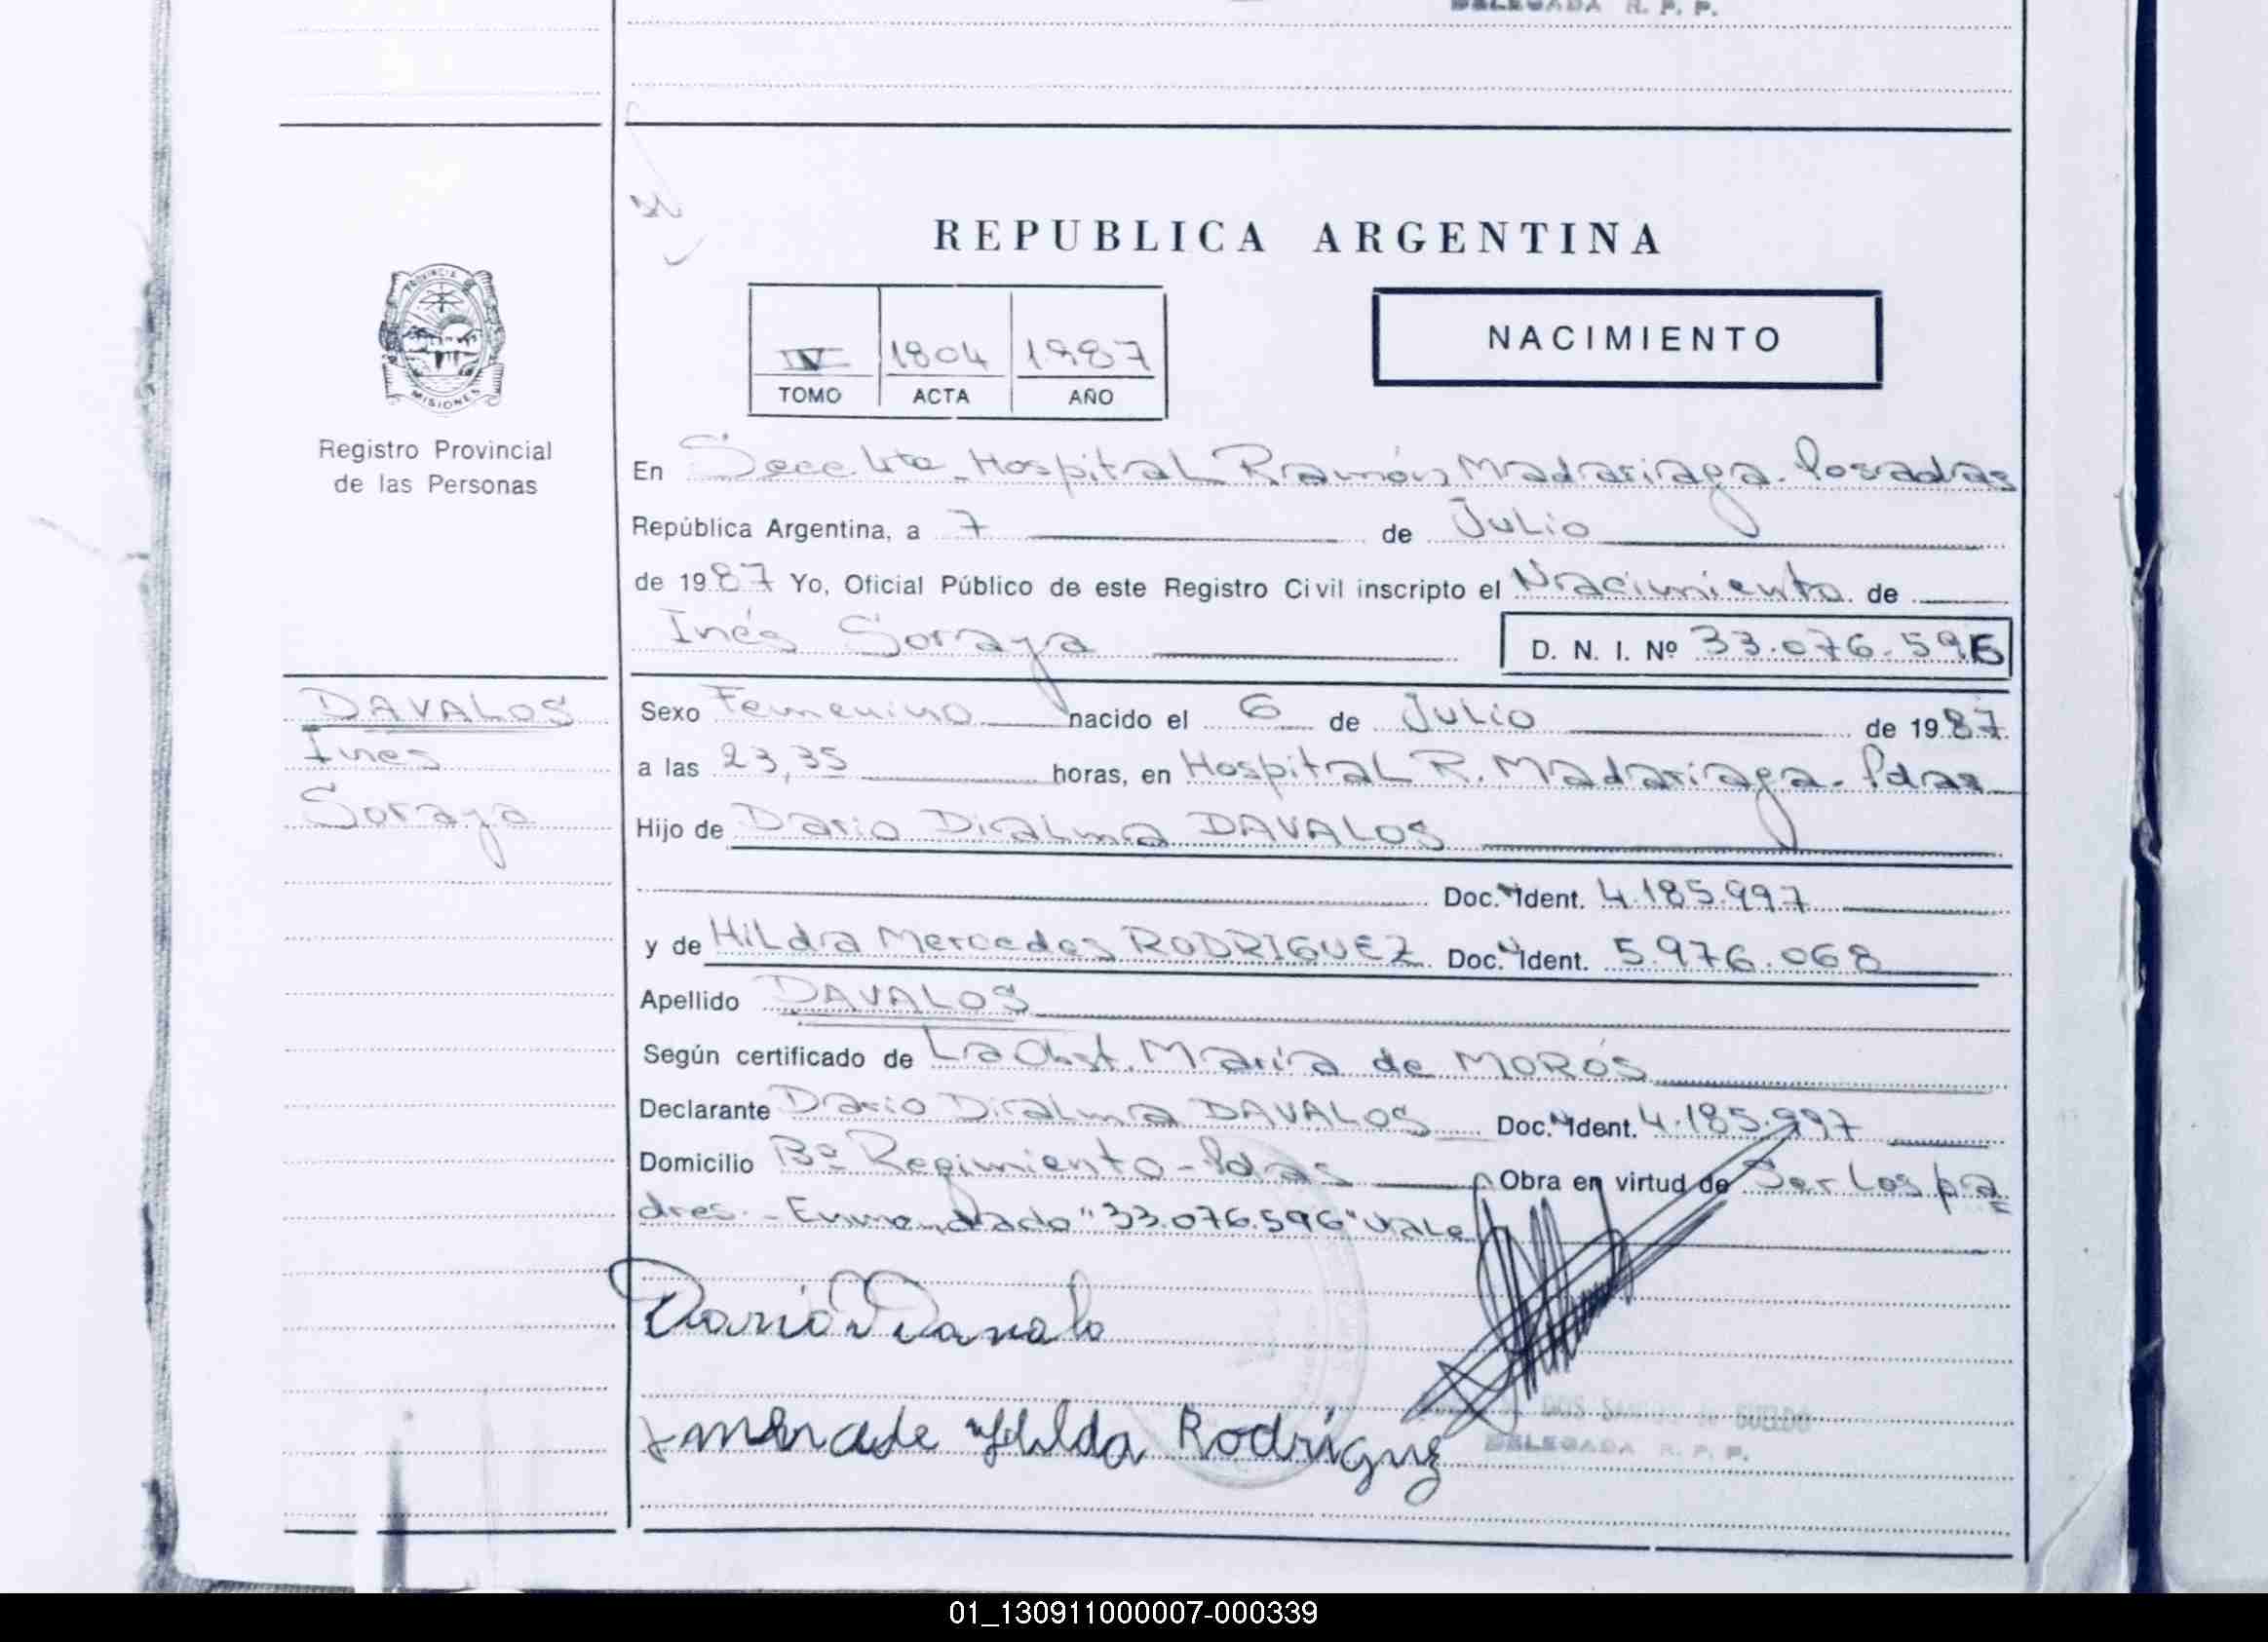 DELEGADA R. P. P.
REPUBLICA ARGENTINA
NACIMIENTO
IV 1804 1987
TOMO ACTA AÑO
PROVINCIA DE
MISIONES
Registro Provincial
de las Personas
En Secc. 4ta. Hospital Ramón Madariaga. Posadas
República Argentina, a 7 de Julio
de 1987 Yo, Oficial Público de este Registro Civil inscripto el Nacimiento de
Inés Soraya D. N. I. Nº 33.076.596
DAVALOS
Ines
Soraya
Sexo Femenino nacido el 6 de Julio de 1987
a las 23,35 horas, en Hospital R. Madariaga. Pdas
Hijo de Dario Dialma DAVALOS
Doc. Ident. 4.185.997
y de Hilda Mercedes RODRIGUEZ Doc. Ident. 5.976.068
Apellido DAVALOS
Según certificado de La Obst. María de MORÓS
Declarante Dario Dialma DAVALOS Doc. Ident. 4.185.997
Domicilio Bº Regimiento - Pdas Obra en virtud de Ser Los pa
dres. - Enmendado "33.076.596" Vale
Dario Davalo
mercade Hilda Rodriguz
DOS SANTOS DELEGADA R. P. P.
01_130911000007-000339